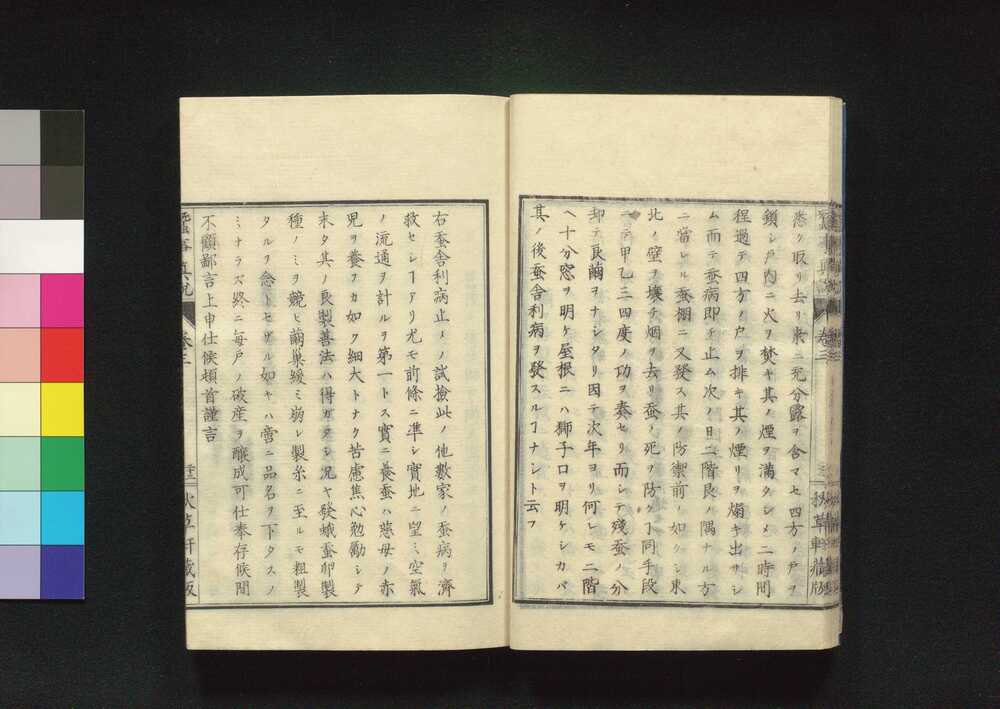 悉ク取リ去リ米ニ充分露ヲ含マセ四方ノ戸ヲ
鎖シ戸内ニ火ヲ焚キ其ノ煙ヲ満タシメ二時間
程過テ四方ノ戸ヲ排キ其ノ煙リヲ煽キ出サシ
ム而テ蚕病即チ止ム次ノ日二階艮ノ隅ナル方
ニ當レル蚕棚ニ又發ス其ノ防禦前ノ如クシ東
北ノ壁ヲ壊チ烟ヲ去リ蚕ノ死ヲ防クヿ同手段
ニテ甲乙三四度ノ功ヲ奏セリ而シテ残蚕ノ分
却テ良繭ヲナシタリ因テ次年ヨリ何レモ二階
ヘ十分窓ヲ明ケ屋根ニハ獅子口ヲ明ケシカバ
其ノ後蚕舎利病ヲ發スルヿナシト云フ
右蚕舎利病止メノ試撿此ノ他數家ノ蚕病ヲ濟
救セシヿアリ尤モ前條ニ準シ實地ニ望ミ空氣
ノ流通ヲ計ルヲ第一トス實ニ養蚕ハ慈母ノ赤
児ヲ養フカ如ク細大トナク苦慮焦心勉勵シテ
未タ其ノ良製善法ハ得ガタシ况ヤ發蛾蚕卵製
種ノミヲ競ヒ繭巣緩ミ弱レ製糸ニ至ルモ粗製
タルヲ念トセザル如キハ啻ニ品名ヲ下タスノ
ミナラズ終ニ毎戸ノ破産ヲ醸成可仕奉存候間
不顧鄙言上申仕候頓首謹言
蚕事真説
巻三
秋草軒蔵版